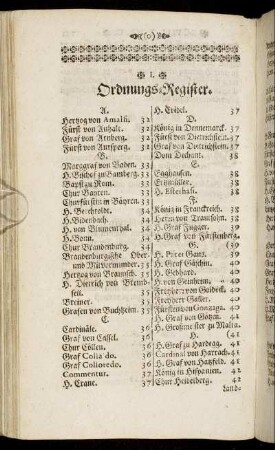 (0)
I.
Ordnungs-Register.
A.
Hertzog von Amalfi. 32
Fürst von Anhalt. 32
Graf von Arnberg. 32
Fürst von Aursperg. 32
B.
Marggraf von Baden. 33
H. Bischof zu Bamberg. 33
Bapst zu Rom. 33
Chur Bayren. 33
Churfürstin in Bäyren. 33
H. Bechtoldt. 34
H. Bidenbach. 34
H. von Blumenthal. 34
H. Bonn. 34
Chur Brandenburg. 34
Brandenburgische Ober-
und Mitvormünder. 35
Hertzog von Braunsch. 35
H. Dietrich von
Breiner. 35
Grafen von Buchheim. 35
C.
Cardinäle. 36
Graf von Cassel. 36
Chur Cöllen. 36
Graf Colia do. 36
Graf Colloredo. 36
Commentur. 37
H. Crane. 37
H. Cridel. 37
D.
König in Dennemarck. 37
Fürst von Dietrichstein. 37
Graf von Dietrichstein. 38
Dom Dechant. 38
E.
Egghausen. 38
Erstenberger
H. Esterhasi. 38
F.
König in Franckreich. 38
Herrn von Traunsohn. 38
H. Graf Fugger. 39
H. Graf von Fürstenberg.
G. (39)
H. Peter Gans. 39
H. Gebhard. 40
H. von Geinheim. 40
Freyherr Galler. 40
Fürstenvon Gonzaga. 40
H. Graf von Götzen. 41
H. Großmeister zu Malta.
H. (41
H. Graf zu Hardegg. 41
Cardinal von Harrach. 41
H. Graf von Hatzfeld. 41
König in Hispanien. 42
Chur Heidelberg. 42
Land-